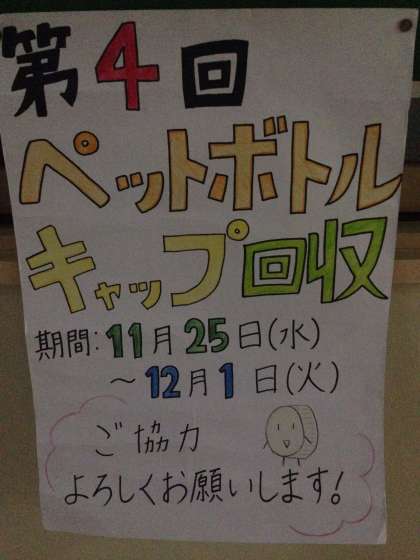 第4回
ペットボトル
キャップ回収
期間:11月25日(水)
～12月1日(火)
ご協力
よろしくお願いします!